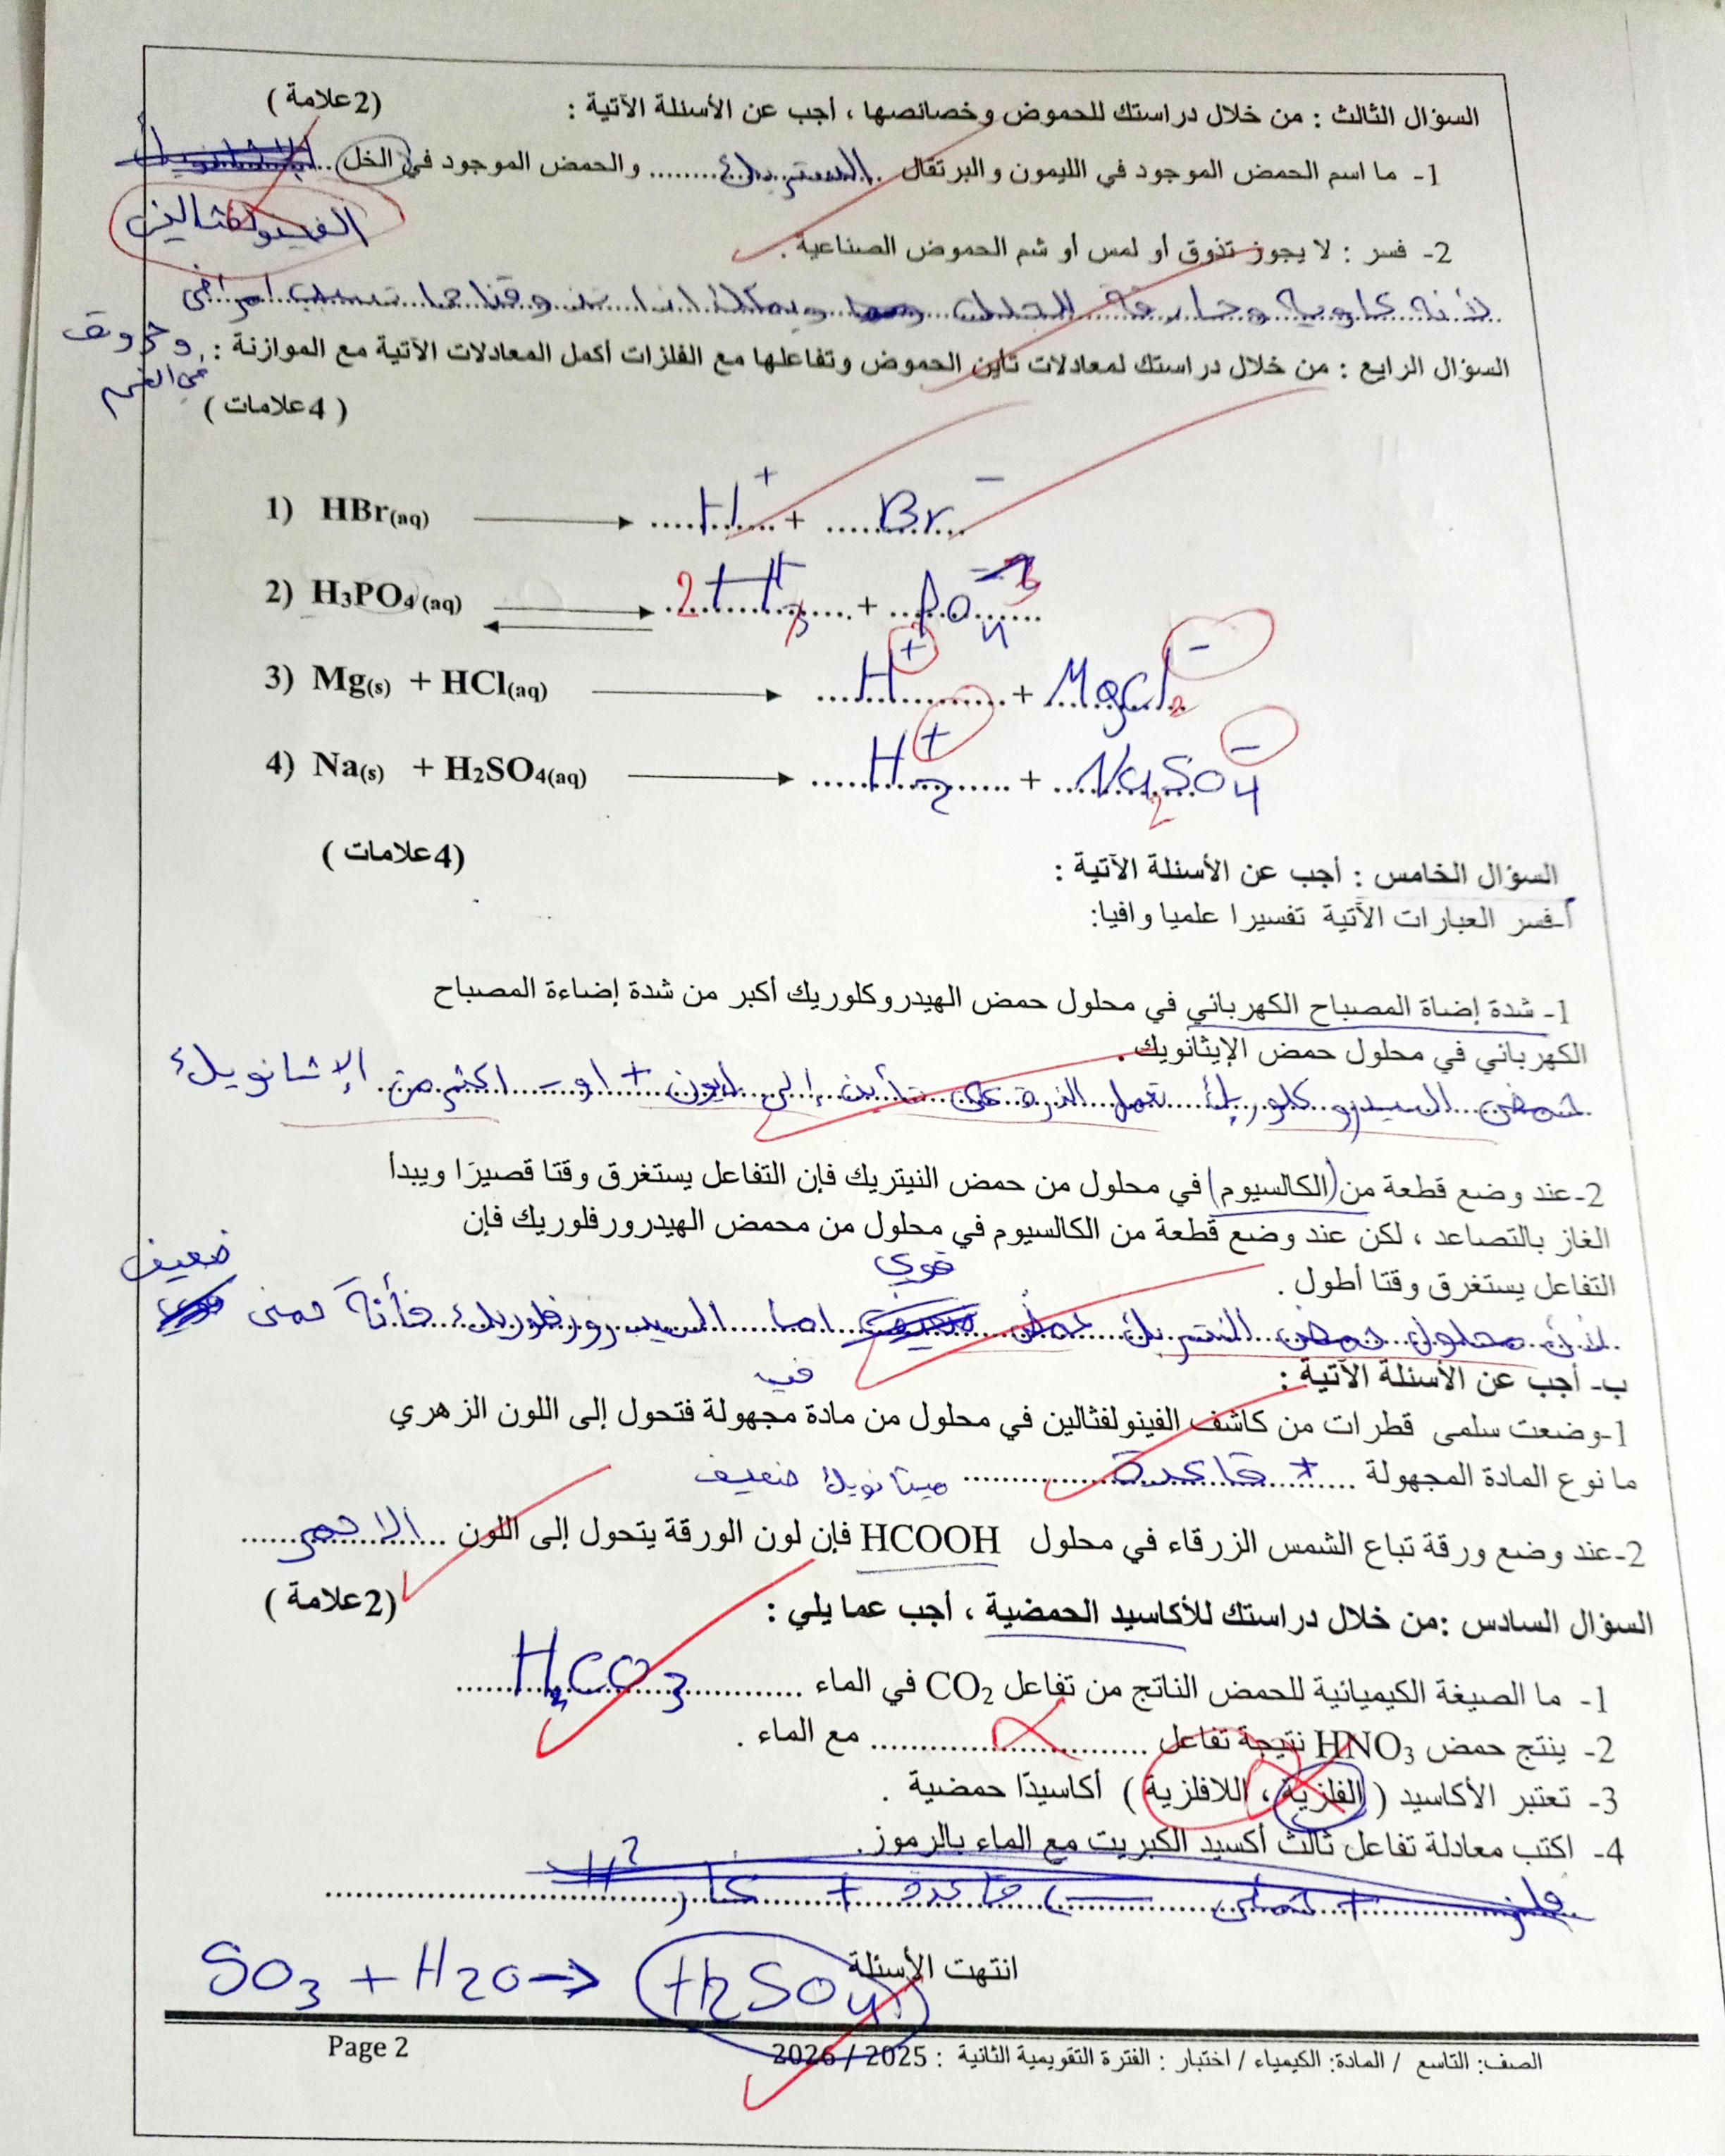 السؤال الثالث : من خلال دراستك للحموض وخصائصها ، أجب عن الأسئلة الآتية : (2علامة )
1- ما اسم الحمض الموجود في الليمون والبرتقال ..الستريك......... والحمض الموجود في الخل ...
الفينولفثالين
2- فسر : لا يجوز تذوق أو لمس أو شم الحموض الصناعية .
لأنه كاوية وحارقة للجلد ويمكن اذا تذوقناها تسبب امراض
وحروق
في الفم
السؤال الرابع : من خلال دراستك لمعادلات تأين الحموض وتفاعلها مع الفلزات أكمل المعادلات الآتية مع الموازنة :
( 4علامات )
1) HBr(aq) ⟶ H⁺ + Br⁻
2) H₃PO₄(aq) ⇌ H⁺ + PO₄
3) Mg(s) + HCl(aq) ⟶ H⁺ + MgCl₂⁻
4) Na(s) + H₂SO₄(aq) ⟶ H₂⁺ + Na₂SO₄⁻
السؤال الخامس : أجب عن الأسئلة الآتية : (4علامات )
أ-فسر العبارات الآتية تفسيرا علميا وافيا:
1- شدة إضاة المصباح الكهربائي في محلول حمض الهيدروكلوريك أكبر من شدة إضاءة المصباح
الكهربائي في محلول حمض الإيثانويك .
حمض الهيدروكلوريك تعمل الذرة على تأين إلى ايون + او - اكثر من الإيثانويك
2-عند وضع قطعة من (الكالسيوم) في محلول من حمض النيتريك فإن التفاعل يستغرق وقتا قصيرًا ويبدأ
الغاز بالتصاعد ، لكن عند وضع قطعة من الكالسيوم في محلول من محمض الهيدرورفلوريك فإن
التفاعل يستغرق وقتا أطول .
لأن محلول حمض النتريك حمض قوي اما الهيدروفلوريك فأنة حمض ضعيف
ب- أجب عن الأسئلة الآتية :
1-وضعت سلمى قطرات من كاشف الفينولفثالين في محلول من مادة مجهولة فتحول إلى اللون الزهري
ما نوع المادة المجهولة ... قاعدة ...
ميثانويك ضعيف
2-عند وضع ورقة تباع الشمس الزرقاء في محلول HCOOH فإن لون الورقة يتحول إلى اللون ...الاحمر...
السؤال السادس :من خلال دراستك للأكاسيد الحمضية ، أجب عما يلي : (2علامة )
1- ما الصيغة الكيميائية للحمض الناتج من تفاعل CO₂ في الماء ... H₂CO₃ ...
2- ينتج حمض HNO₃ نتيجة تفاعل ........................ مع الماء .
3- تعتبر الأكاسيد ( الفلزية ، اللافلزية ) أكاسيدًا حمضية .
4- اكتب معادلة تفاعل ثالث أكسيد الكبريت مع الماء بالرموز.
فلز + حمض → قاعدة + غاز H2
SO₃ + H₂O → H₂SO₄
انتهت الأسئلة
الصف: التاسع / المادة: الكيمياء / اختبار : الفترة التقويمية الثانية : 2025 / 2026 Page 2